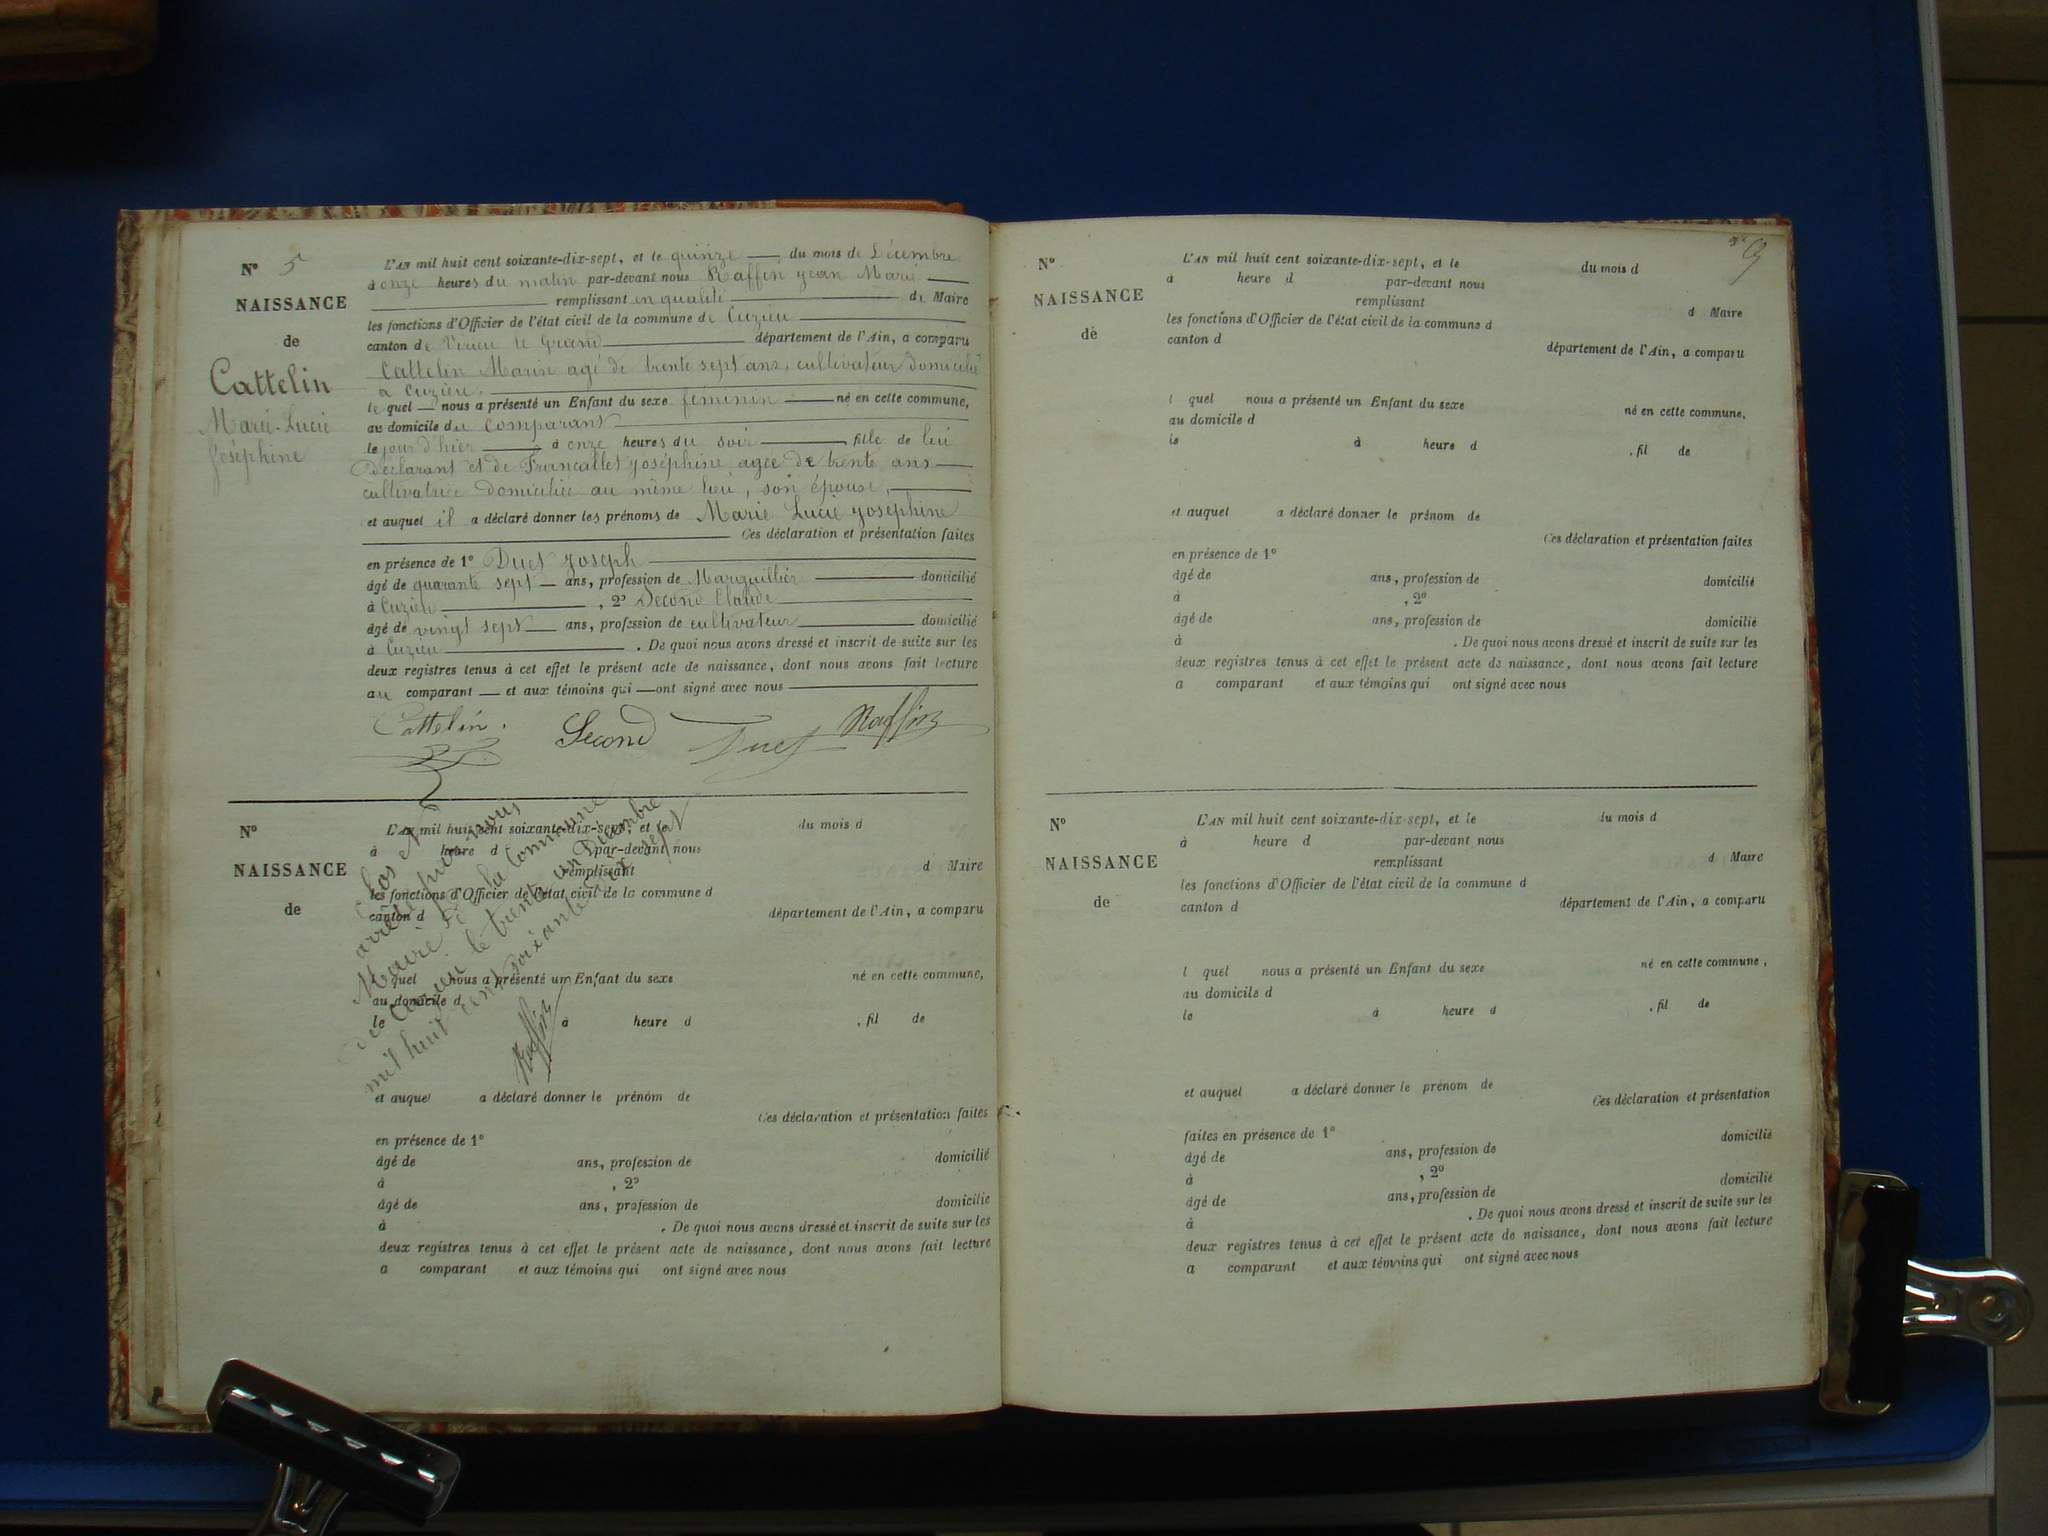 N° 5
NAISSANCE
de
Cattelin
Marie-Lucie
Joséphine
L'AN mil huit cent soixante-dix-sept, et le quinze du mois de Décembre
à onze heures du matin par-devant nous Raffin Jean Marie
remplissant en qualité de Maire
les fonctions d'Officier de l'état civil de la commune de Cuzieu
canton de Virieu le Grand département de l'Ain, a comparu
Cattelin Marin agé de trente sept ans, cultivateur domicilié
à Cuzieu.
lequel nous a présenté un Enfant du sexe féminin né en cette commune,
au domicile du comparant
le jour d'hier à onze heures du soir fille de lui
Déclarant et de Francallet Joséphine agée de trente ans
cultivatrice domiciliée au même lieu, son épouse,
et auquel il a déclaré donner les prénoms de Marie Lucie Joséphine
Ces déclaration et présentation faites
en présence de 1° Duet Joseph
âgé de quarante sept ans, profession de Marguillier domicilié
à Cuzieu , 2° Second Claude
âgé de vingt sept ans, profession de cultivateur domicilié
à Cuzieu . De quoi nous avons dressé et inscrit de suite sur les
deux registres tenus à cet effet le présent acte de naissance, dont nous avons fait lecture
au comparant et aux témoins qui ont signé avec nous
Cattelin. Second Duet Raffin
N°
NAISSANCE
de
L'AN mil huit cent soixante-dix-sept, et le du mois d
à heure d par-devant nous
remplissant d Maire
les fonctions d'Officier de l'état civil de la commune d
canton d département de l'Ain, a comparu
l quel nous a présenté un Enfant du sexe né en cette commune,
au domicile d
le à heure d , fil de
et auquel a déclaré donner le prénom de
Ces déclaration et présentation faites
en présence de 1°
âgé de ans, profession de domicilié
à , 2°
âgé de ans, profession de domicilié
à . De quoi nous avons dressé et inscrit de suite sur les
deux registres tenus à cet effet le présent acte de naissance, dont nous avons fait lecture
a comparant et aux témoins qui ont signé avec nous
Clos et
arrêté par nous
Maire de la commune
de Cuzieu le trente un Décembre
mil huit cent soixante dix sept
Raffin
N°
NAISSANCE
de
L'AN mil huit cent soixante-dix-sept, et le du mois d
à heure d par-devant nous
remplissant d Maire
les fonctions d'Officier de l'état civil de la commune d
canton d département de l'Ain, a comparu
l quel nous a présenté un Enfant du sexe né en cette commune,
au domicile d
le à heure d , fil de
et auquel a déclaré donner le prénom de
Ces déclaration et présentation faites
en présence de 1°
âgé de ans, profession de domicilié
à , 2°
âgé de ans, profession de domicilié
à . De quoi nous avons dressé et inscrit de suite sur les
deux registres tenus à cet effet le présent acte de naissance, dont nous avons fait lecture
a comparant et aux témoins qui ont signé avec nous
N°
NAISSANCE
de
L'AN mil huit cent soixante-dix-sept, et le du mois d
à heure d par-devant nous
remplissant d Maire
les fonctions d'Officier de l'état civil de la commune d
canton d département de l'Ain, a comparu
l quel nous a présenté un Enfant du sexe né en cette commune,
au domicile d
le à heure d , fil de
et auquel a déclaré donner le prénom de
Ces déclaration et présentation
faites en présence de 1° domicilié
âgé de ans, profession de
à , 2° domicilié
âgé de ans, profession de
à . De quoi nous avons dressé et inscrit de suite sur les
deux registres tenus à cet effet le présent acte de naissance, dont nous avons fait lecture
a comparant et aux témoins qui ont signé avec nous